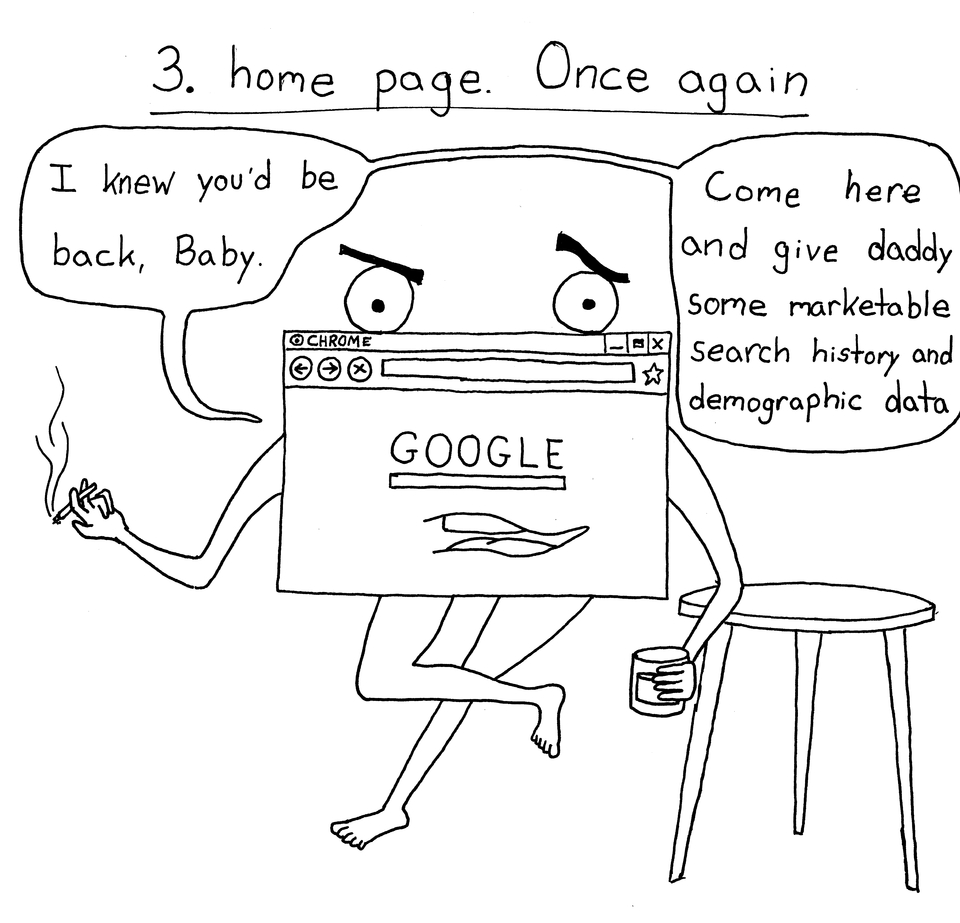 3. home page. Once again
I knew you'd be
back, Baby.
Come here
and give daddy
some marketable
search history and
demographic data
CHROME
GOOGLE